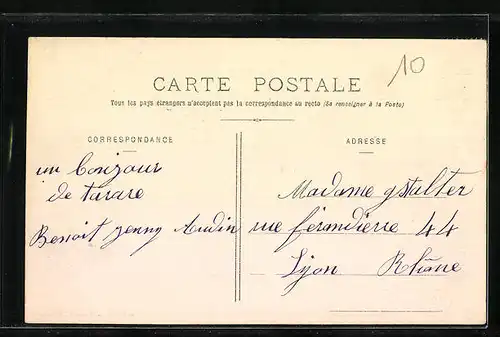 10
CARTE POSTALE
Tous les pays étrangers n'acceptent pas la correspondance au recto (Se renseigner à la Poste)
CORRESPONDANCE
un bonjour
de tarare
Benoit jenny Audin
ADRESSE
Madame gstalter
rue ferandiere 44
Lyon Rhône